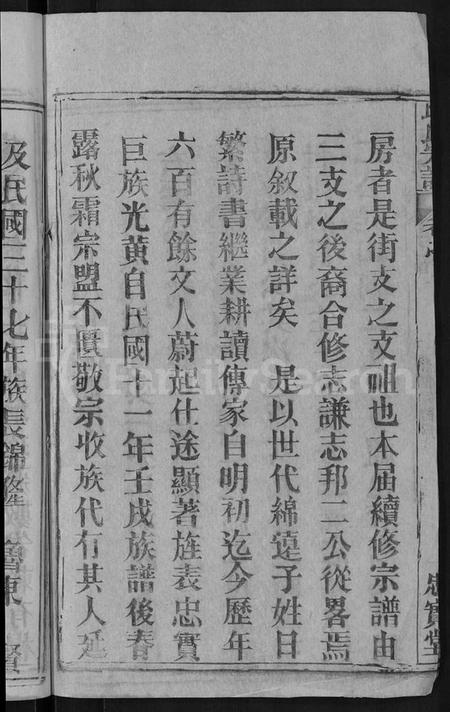 房者是街支之支祖也本届續修宗譜由
三支之後裔合修志謙志邦二公從畧焉
原敘載之詳矣 是以世代綿遠子姓日
繁詩書繼業耕讀傳家自明初迄今歷年
六百有餘文人蔚起仕途顯著旌表忠實
巨族光黃自民國十一年壬戌族譜後春
露秋霜宗盟不慎敬宗收族代有其人延
及民國三十七年族長錦
忠實堂
FamilySearch